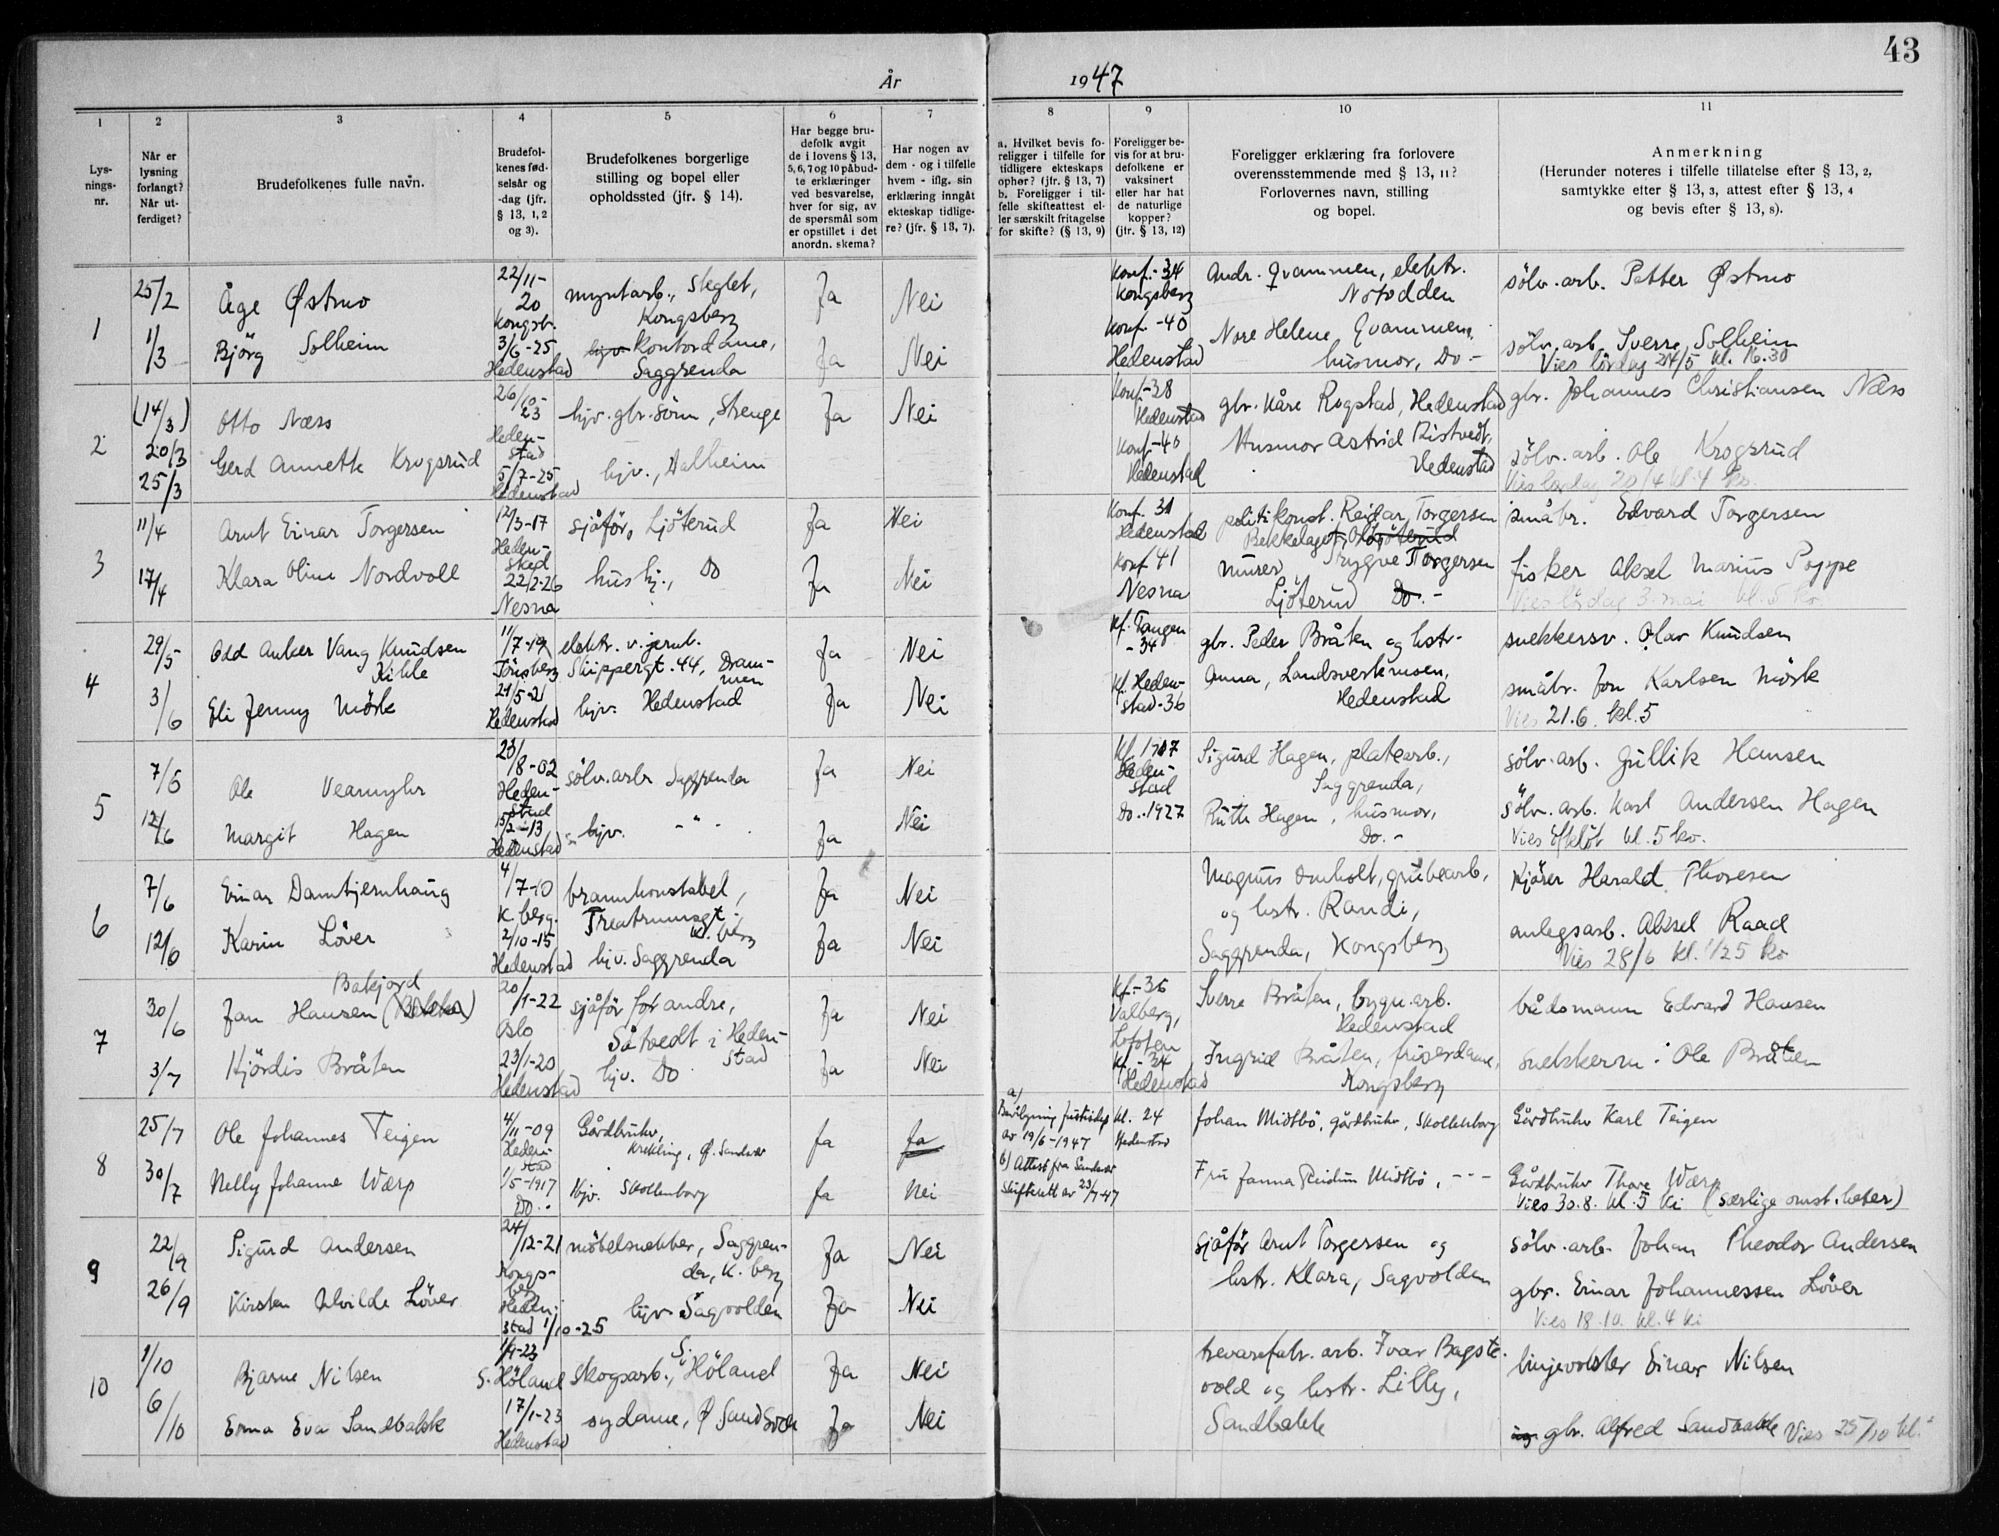 43
År 1947
1
2
3
4
5
6
7
8
9
10
11
Lys-
nings-
nr.
Når er
lysning
forlangt?
Når ut-
ferdiget?
Brudefolkenes fulle navn.
Brudefol-
kenes fød-
selsår og
-dag (jfr.
§ 13, 1, 2
og 3).
Brudefolkenes borgerlige
stilling og bopel eller
opholdssted (jfr. § 14).
Har begge bru-
defolk avgit
de i lovens § 13,
5, 6, 7 og 10 påbud-
te erklæringer
ved besvarelse,
hver for sig, av
de spørsmål som
er opstillet i det
anordn. skema?
Har nogen av
dem - og i tilfelle
hvem - iflg. sin
erklæring inngåt
ekteskap tidlige-
re? (jfr. § 13, 7).
a. Hvilket bevis fo-
religger i tilfelle for
tidligere ekteskaps
ophør? (jfr. § 13, 7)
b. Foreligger i til-
felle skifteattest el-
ler særskilt fritagelse
for skifte? (§ 13, 9)
Foreligger be-
vis for at bru-
defolkene er
vaksinert
eller har hat
de naturlige
kopper?
(jfr. § 13, 12)
Foreligger erklæring fra forlovere
overensstemmende med § 13, 11?
Forlovernes navn, stilling
og bopel.
Anmerkning
(Herunder noteres i tilfelle tillatelse efter § 13, 2,
samtykke efter § 13, 3, attest efter § 13, 4
og bevis efter § 13, 8).
1
25/2
Åge Østmo
22/11-
20
Kongsb.
myntarb., Steglet,
Kongsberg
Ja
Nei
Konf.-34
Kongsberg
Andr. Qvammen, elektr.
Notodden
sölv.arb. Petter Østmo
1/3
Björg Solheim
3/6-25
Hedenstad
kontordame,
Saggrenda
Ja
Nei
Konf.-40
Hedenstad
Nore Helene Qvammen,
husmor, Do.-
sölv.arb. Sverre Solheim
Vies lördag 24/5 kl. 16.30
2
(14/3)
20/3
25/3
Otto Næss
26/10-
23
Heden-
stad
hjv. gbr.sönn, Strenge
Ja
Nei
Konf.-38
Hedenstad
gbr. Kåre Rogstad, Hedenstad
gbr. Johannes Christiansen Næss
Gerd Annette Krogsrud
5/7-25
Hedenstad
hjv., Dalheim
Konf-40
Hedenstad
Husmor Astrid Ristvedt,
Hedenstad
sölv.arb. Ole Krogsrud
3
11/4
Arnt Einar Torgersen
12/3-17
Heden-
stad
sjåför, Ljöterud
Ja
Nei
Konf. 31
Hedenstad
politikonst. Reidar Torgersen
småbr. Edvard Torgersen
17/4
Klara Oline Nordvoll
22/2-26
Nesna
hushj., Do
Ja
Nei
Konf 41
Nesna
murer Trygve Torgersen
Ljöterud Do.-
fisker Aksel Marius Poppe
Vies lördag 3. mai kl. 5 ko
4
29/5
Odd Anker Vang Knudsen
Kihle
11/7-19
Tönsberg
elektr. v. jernb.
Skippergt. 44, Dram-
men
Ja
Nei
Kf. Tangen
-34
gbr. Peder Bråten og hstr.
snekkersv. Olav Knudsen
3/6
Eli Jenny Mörk
21/5-21
Hedenstad
hjv. Hedenstad
Ja
Nei
Kf. Heden-
stad-36
Anna, Landsverkmoen,
Hedenstad
småbr. Jon Karlsen Mörk
Vies 21.6. kl. 5
5
7/6
Ole Veamyhr
23/8-02
Heden-
stad
sölv.arb. Saggrenda
Ja
Nei
Kf. 1917
Heden-
stad
Sigurd Hagen, platearb.,
Saggrenda,
sölv.arb. Gullik Hansen
12/6
Margit Hagen
15/2-13
Hedenstad
hjv. -"-
Ja
Nei
Do..1927
Ruth Hagen, husmor,
Do.-
sölv.arb. Karl Andersen Hagen
Vies Efteløt kl. 5 ko.
6
7/6
Einar Damtjernhaug
4/7-10
K.berg.
brannkonstabel,
K.berg
Ja
Nei
Magnus Omholt, grubearb,
og hstr. Randi,
Kjörer Harald Thoresen
12/6
Karin Löver
2/10-15
Hedenstad
hjv. Saggrenda
Ja
Nei
Saggrenda, Kongsberg
anlegsarb. Aksel Raad
Vies 28/6 kl. 1/2 5 ko
7
30/6
Bakjord
Jan Hansen
20/1-22
Oslo
sjåför for andre,
Såtvedt i Heden-
stad
Ja
Nei
Kf.-36
Valberg,
Lofoten
Sverre Bråten, bygn.arb.
Hedenstad
båtsmann Edvard Hansen
3/7
Hjördis Bråten
23/1-20
Hedenstad
hjv. Do
Ja
Nei
Kf.-34
Hedenstad
Ingrid Bråten, friserdame,
Kongsberg
snekkerm. Ole Bråten
8
25/7
Ole Johannes Teigen
4/11-09
Heden-
stad
Gårdbruker,
Krekling, Ø. Sandsvær
Ja
Ja
a)
Bevilgning
av 19/6-1947
kf. 24
Hedenstad
Johan Midtbö, gårdbruker, Skollenborg
Gårdbruker Karl Teigen
30/7
Nelly Johanne Wærp
1/5-1917
Do.-
Hjv. Skollenborg
Ja
Nei
b) Attest fra Sandsvær
Skifterett av 23/7-47
Fru Janna Midtbö, ---
Gårdbruker Thore Wærp
Vies 30.8. kl. 5 Ki (særlige omst.heter)
9
22/9
Sigurd Andersen
24/12-21
Kongs-
berg
möbelsnekker, Saggren-
da, K.berg
Ja
Nei
sjåför Arnt Torgersen og
sölv.arb. Johan Theodor Andersen
26/9
Kirsten Alvilde Löver
Heden-
stad 1/10-25
hjv. Sagvolden
Ja
Nei
hstr. Klara, Sagvolden
gbr. Einar Johannessen Löver
Vies 18.10. kl. 4 ki
10
1/10
Bjarne Nilsen
1/9-23
S. Höland
skogsarb., S. Höland
Ja
Nei
trevarefabr. arb. Ivar Bagste-
vold og hstr. Lilly,
linjevokter Einar Nilsen
6/10
Erna Eva Sandbakk
17/1-23
Hedenstad
sydame, Ø Sandsvær
Ja
Nei
Sandbakk
gbr. Alfred Sandbakk Vies 25/10 kl.